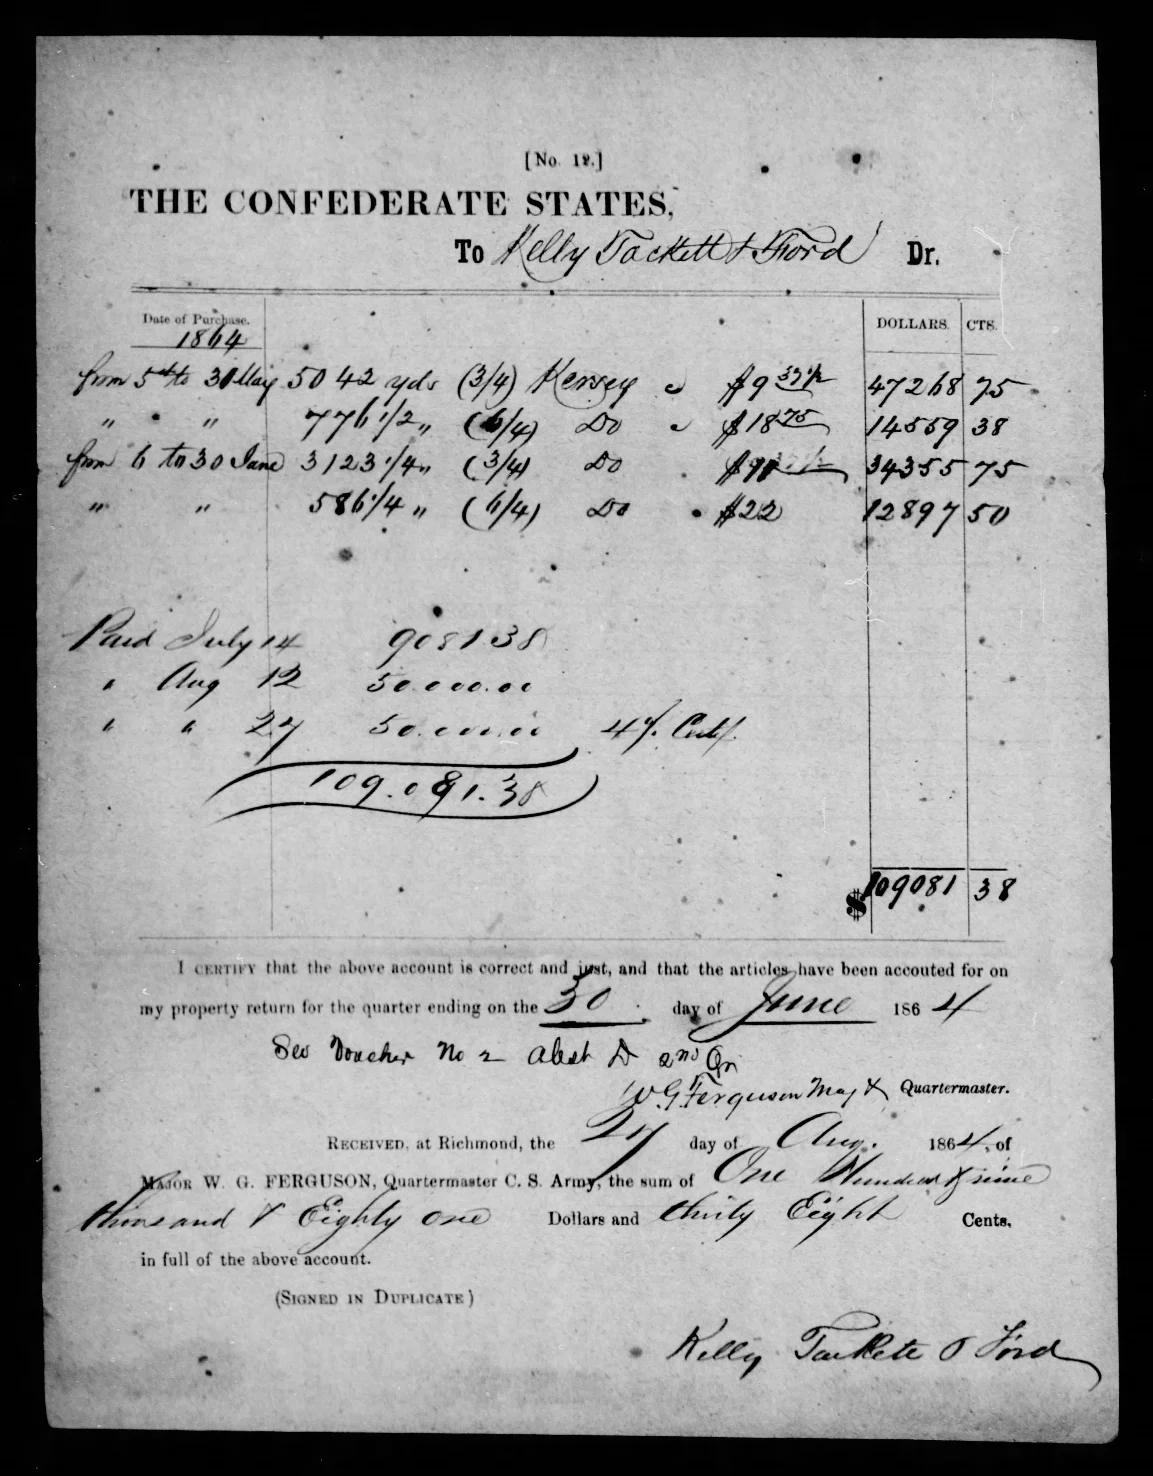 [No. 12.]
THE CONFEDERATE STATES,
To Kelly Tackett & Ford Dr.
Date of Purchase. DOLLARS. CTS.
1864
from 5th to 30 May 5042 yds (3/4) Kersey @ $9 37 1/2 47268 75
" " 776 1/2 " (6/4) Do @ $18 75 14559 38
from 6 to 30 June 3123 1/4 " (3/4) Do $11 34355 75
" " 586 1/4 " (6/4) Do $22 12897 50
Paid July 14 9081.38
" Aug 12 50.000.00
" " 27 50.000.00 4%. Certf.
109.081.38
$109081 38
I CERTIFY that the above account is correct and just, and that the articles have been accouted for on
my property return for the quarter ending on the 30 day of June 1864
See Voucher No 2 Abst D 2nd Qr
W. G. Ferguson Maj & Quartermaster.
RECEIVED, at Richmond, the 27 day of Aug. 1864, of
MAJOR W. G. FERGUSON, Quartermaster C. S. Army, the sum of One Hundred & nine
thousand & Eighty one Dollars and thirty Eight Cents,
in full of the above account.
(SIGNED IN DUPLICATE)
Kelly Tackett & Ford